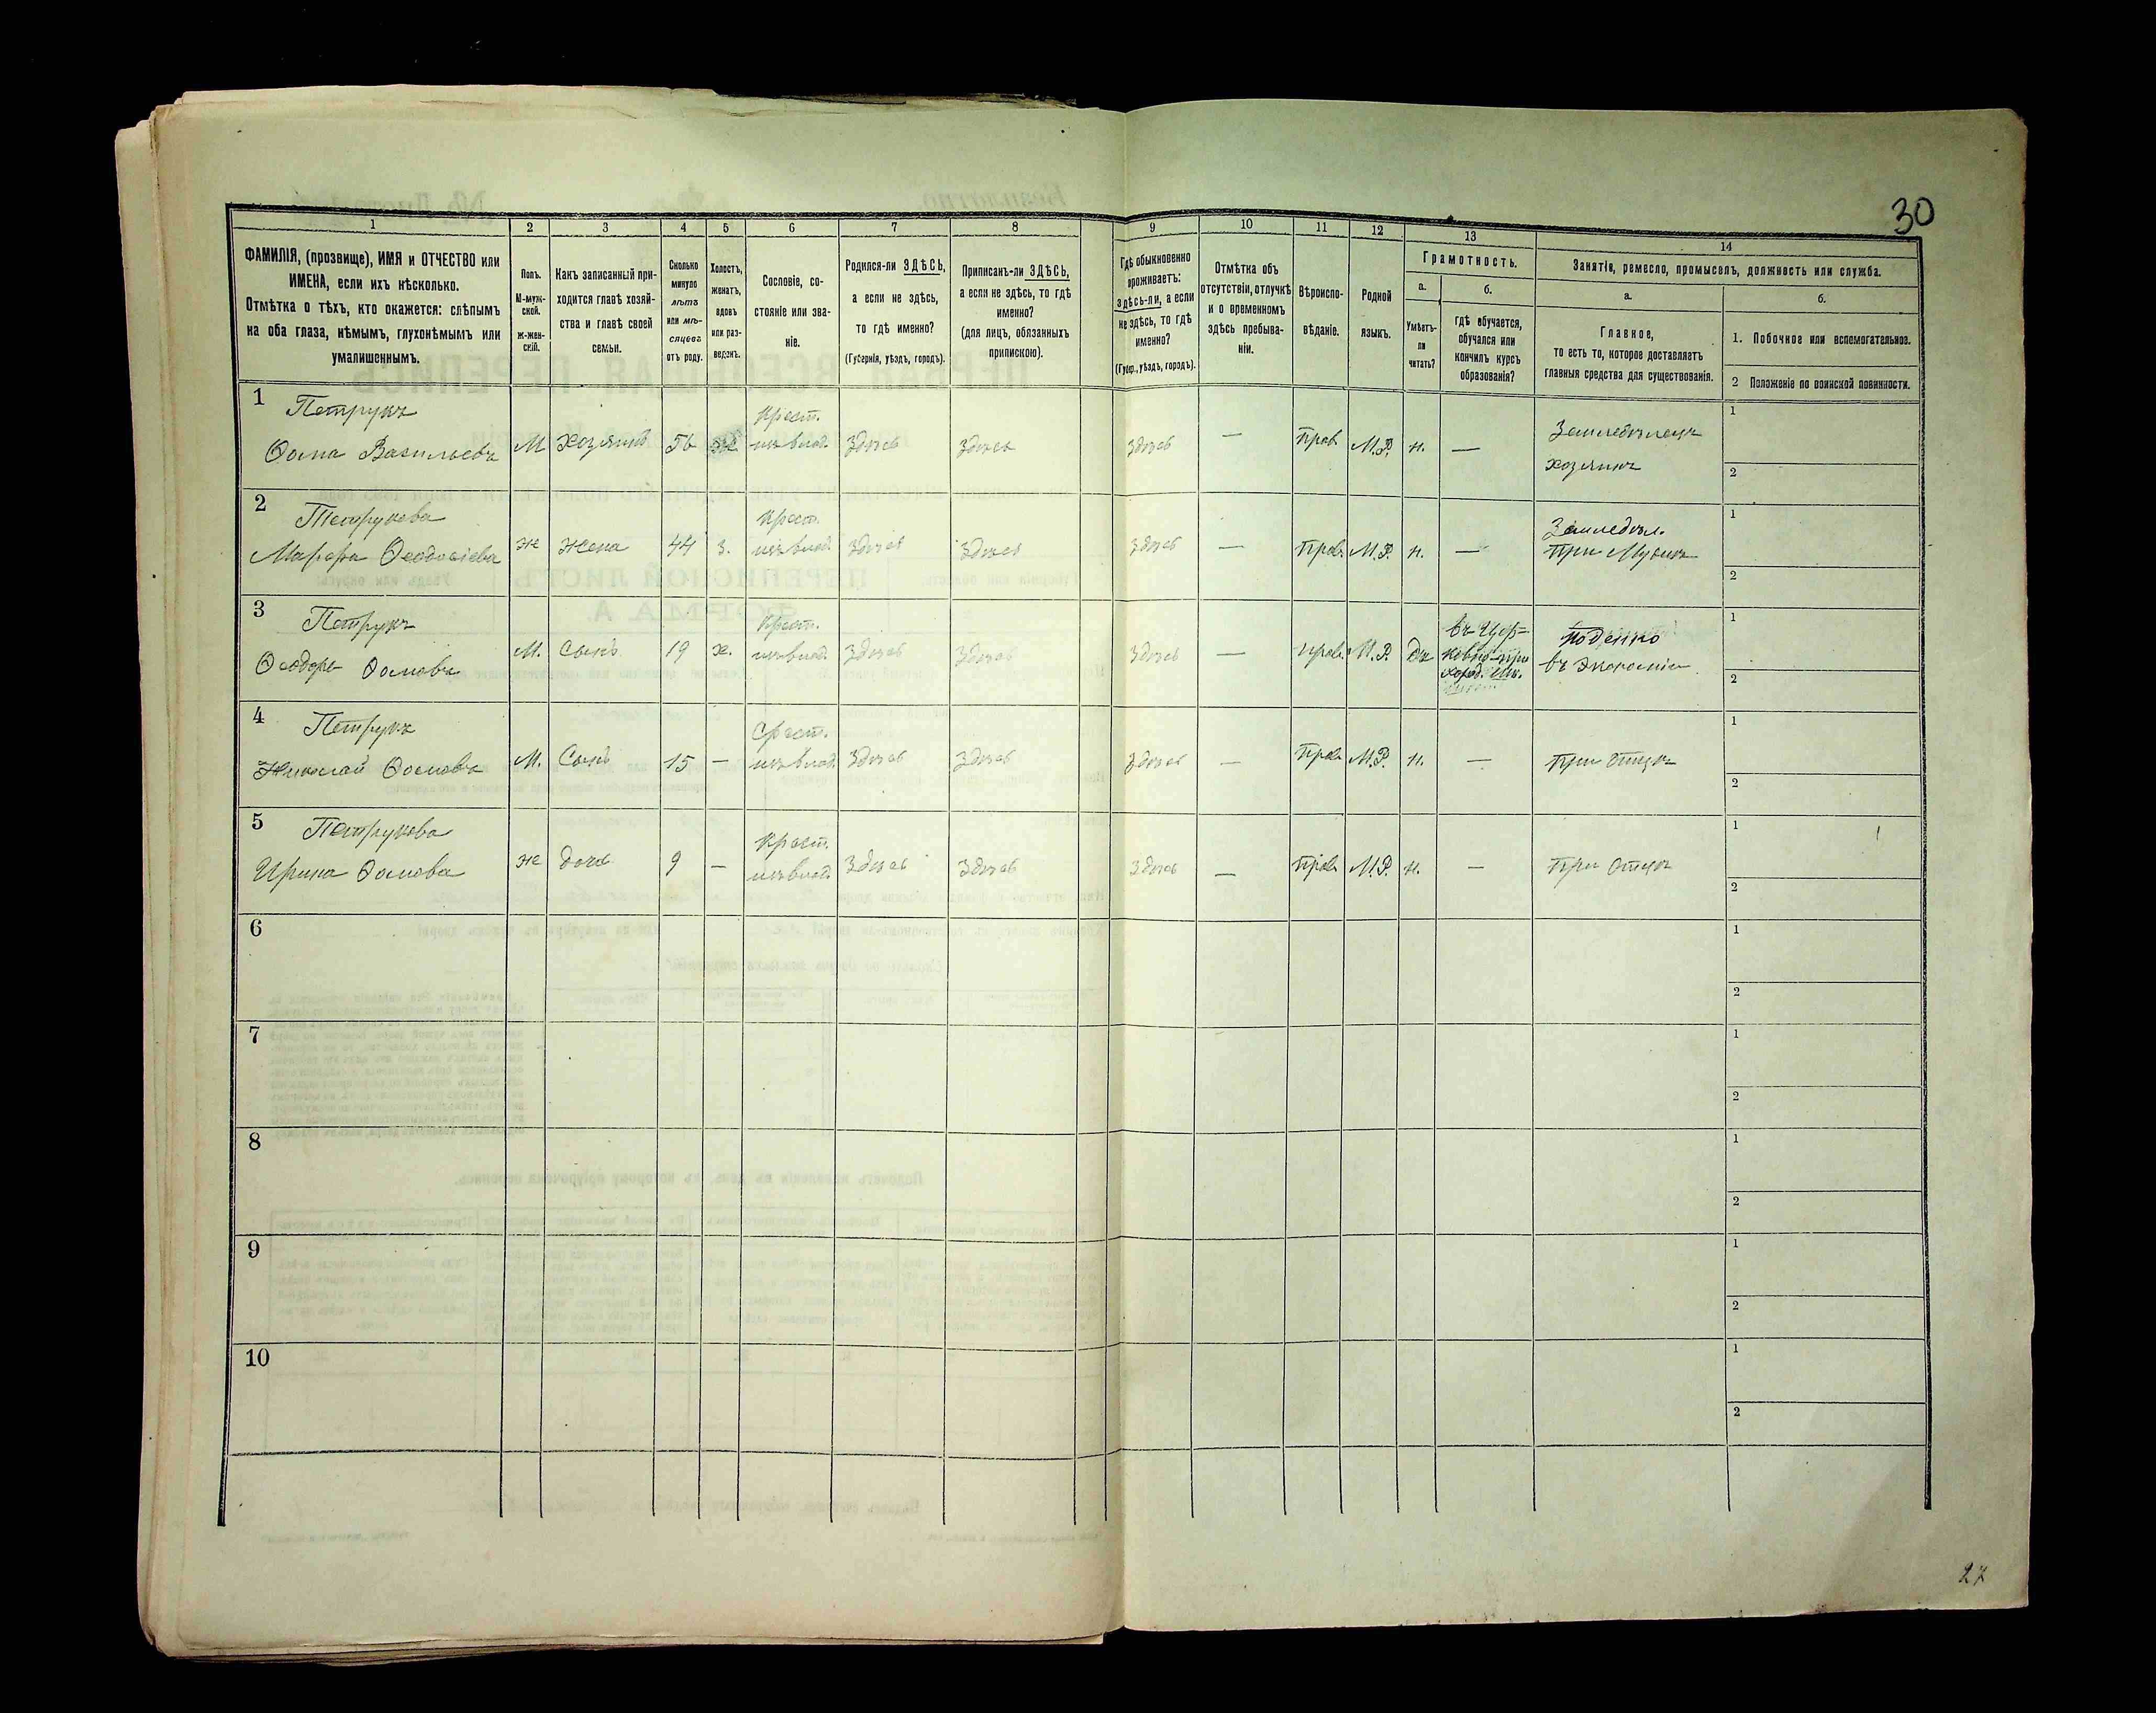 30
1 2 3 4 5 6 7 8 9 10 11 12 13 14
ФАМИЛІЯ, (прозвище), ИМЯ и ОТЧЕСТВО или
ИМЕНА, если ихъ нѣсколько.
Отмѣтка о тѣхъ, кто окажется: слѣпымъ
на оба глаза, нѣмымъ, глухонѣмымъ или
умалишеннымъ.
Полъ.
М-муж-
ской.
ж-жен-
скій.
Какъ записанный при-
ходится главѣ хозяй-
ства и главѣ своей
семьи.
Сколько
минуло
лѣтъ
или мѣ-
сяцевъ
отъ роду.
Холостъ,
женатъ,
вдовъ
или раз-
веденъ.
Сословіе, со-
стояніе или зва-
ніе.
Родился-ли ЗДѢСЬ,
а если не здѣсь,
то гдѣ именно?
(Губернія, уѣздъ, городъ).
Приписанъ-ли ЗДѢСЬ,
а если не здѣсь, то гдѣ
именно?
(для лицъ, обязанныхъ
припискою).
Гдѣ обыкновенно
проживаетъ:
здѣсь-ли, а если
не здѣсь, то гдѣ
именно?
(Губер., уѣздъ, городъ).
Отмѣтка объ
отсутствіи, отлучкѣ
и о временномъ
здѣсь пребыва-
ніи.
Вѣроиспо-
вѣданіе.
Родной
языкъ.
Грамотность.
а.
Умѣетъ-
ли
читать?
б.
гдѣ обучается,
обучался или
кончилъ курсъ
образованія?
Занятія, ремесло, промыселъ, должность или служба.
а.
Главное,
то есть то, которое доставляетъ
главныя средства для существованія.
б.
1. Побочное или вспомогательное.
2 Положеніе по воинской повинности.
1 Петрукъ Крест. Земледѣлецъ 1
Ѳома Васильевъ М Хозяинъ ж из влад. Здѣсь Здѣсь Здѣсь — Прав М.Р. н. — хозяинъ 2
2 Петрукова Крест. Земледѣл. 1
Марфа Ѳеодосіева ж жена 44 з. из влад. Здѣсь Здѣсь Здѣсь — Прав. М.Р. н. — При Мужѣ 2
3 Петрукъ Крест. въ Цер- Поденно 1
Ѳеодоръ Ѳомовъ М. Сынъ 19 х. из влад. Здѣсь Здѣсь Здѣсь — Прав. М.Р. Да ковно-при въ Экономіи 2
ход. Шк.
4 Петрукъ Крест. 1
Николай Ѳомовъ М. Сынъ 15 — из влад. Здѣсь Здѣсь Здѣсь — Прав М.Р. н. — При Отцѣ 2
5 Петрукова Крест. 1
Ирина Ѳомова ж дочь 9 — из влад. Здѣсь Здѣсь Здѣсь — Прав М.Р. н. — При Отцѣ 2
6 1
2
7 1
2
8 1
2
9 1
2
10 1
2
27